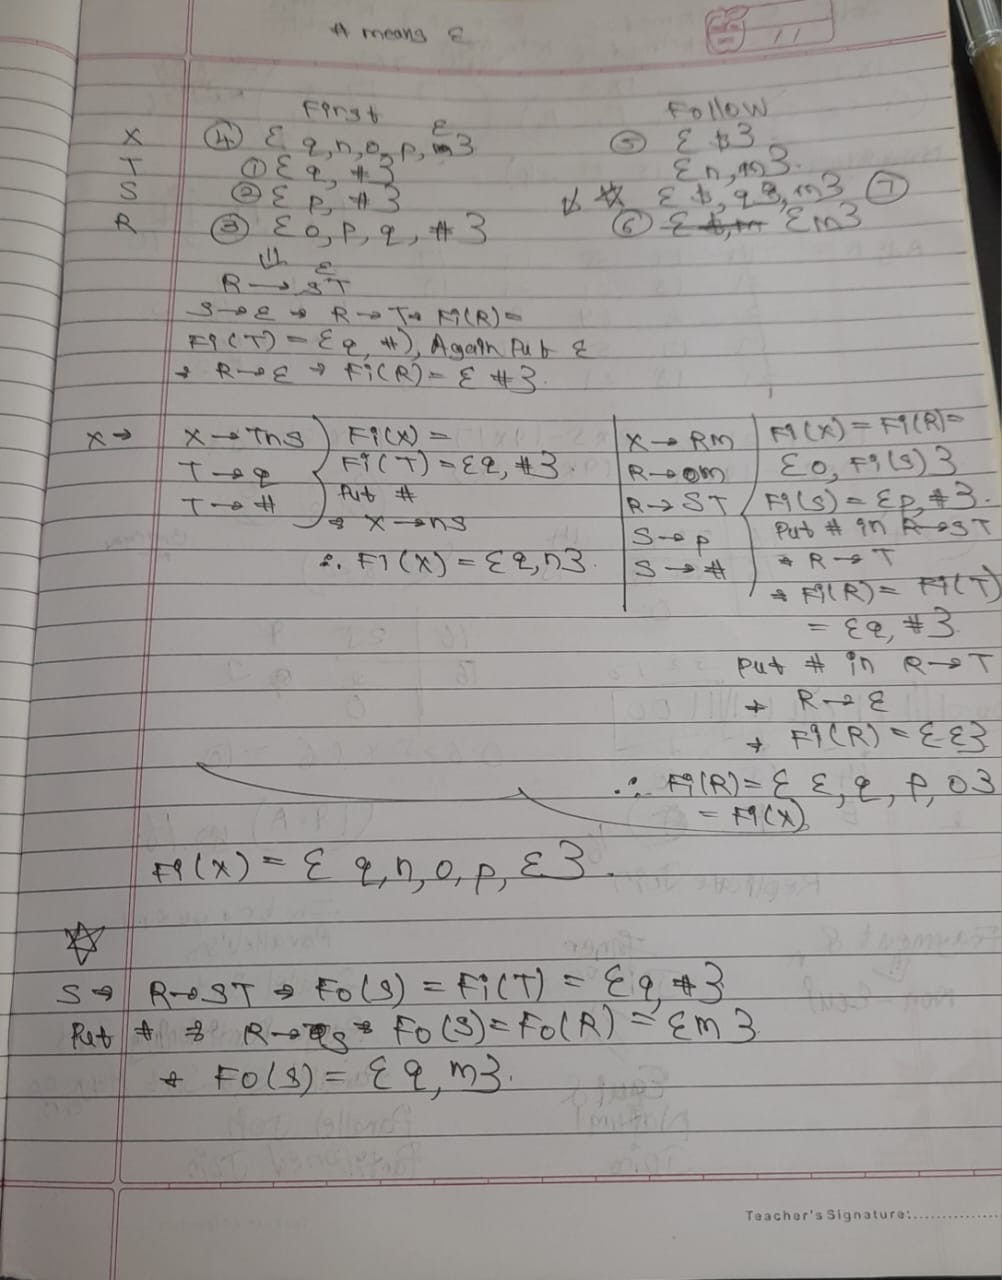 # means ε
First Follow
X ④ { q, n, o, p, m } ε ⑤ { $ }
T ① { q, # } { n, m }.
S ② { p, # } { $, q, m } ⑦
R ③ { o, p, q, # } ⑥ { $, m { m }
R → ST ε
S → ε → R → T → Fi(R) =
Fi(T) = { q, # }, Again Put ε
→ R → ε → Fi(R) = { # }.
X → X → TnS Fi(X) =
T → q Fi(T) = { q, # }.
T → # Put #
→ X → nS
∴ Fi(X) = { q, n }.
X → Rm Fi(X) = Fi(R) =
R → om { o, Fi(S) }
R → ST Fi(S) = { p, # }.
S → p Put # in R → ST
S → # → R → T
→ Fi(R) = Fi(T)
= { q, # }.
Put # in R → T
→ R → ε
→ Fi(R) = { ε }
∴ Fi(R) = { ε, q, p, o }
= Fi(X)
Fi(X) = { q, n, o, p, ε }.
S → R → ST → Fo(S) = Fi(T) = { q, # }
Put # → R → S → Fo(S) = Fo(R) = { m }.
→ Fo(S) = { q, m }.
Teacher's Signature: